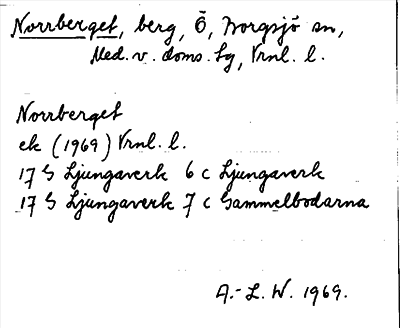 Norrberget, berg, Ö, Borgsjö sn,
Med. v. doms. lg, Vrnl. l.
Norrberget
ek (1969) Vrnl. l.
17 G Ljungaverk 6 c Ljungaverk
17 G Ljungaverk 7 c Gammelbodarna
A.-L. W. 1969.